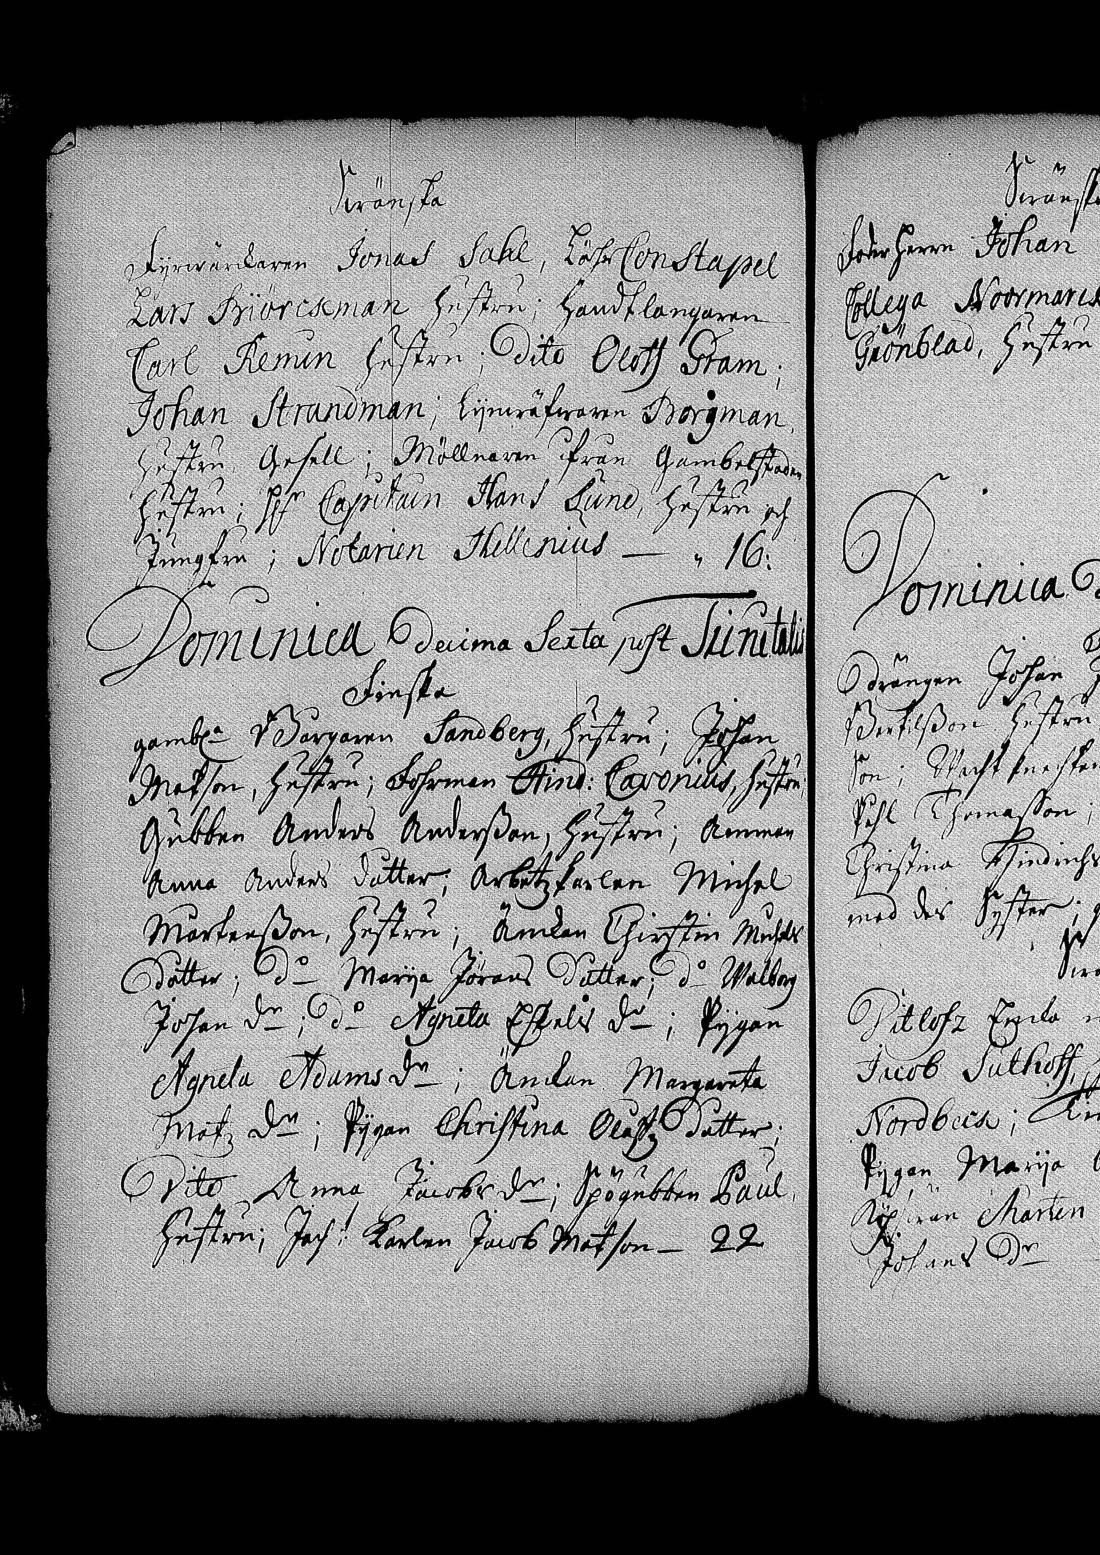 Swänska
Fyrwärckaren Jonas Sahl, Löhs Constapel
Lars Biörckman Hustru; Handtlangaren
Carl Remin Hustru; Dito Oloff Gram;
Johan Strandman; Borgman,
Hustru, Gesell; Möllnaren ifrån Gambelstaden
Hustru; Capitain Hans Lund, Hustru och
Jungfru; Notarien Hellenius — " 16:
Dominica Decima Sexta post Trinitatis
Finska
gamb:a Borgaren Sandberg, Hustru; Johan
Matson, Hustru; Fohrman Hind: Cavonius, Hustru;
Gubben Anders Anderßon, Hustru; Amman
Anna Anders dotter; Arbetzkarlen Michel
Martenßon, Hustru; Änckan Chirstin Michels
Dotter; Do Marija Jörans Dotter; do Walborg
Johan Dr; Do Agneta Eskels Dr; Pygan
Agneta Adams Dr; Änckan Margareta
Matz Dr; Pygan Christina Olufz Dotter;
Dito Anna Jacobs dr; Spögubben Paul,
Hustru; Karlen Jacob Matson — 22
Swänska
Johan
Collega Noormarck
Grönblad, Hustru
Dominica
drängen Johan
Bertilßon Hustru
Son; Wacht knechten
Pehl Thomasson;
Christina Hindrichs
med des Syster;
Ditlofz Encka
Jacob Suthoff,
Nordbeck;
Pygan Marija
Marten
Johans Dr